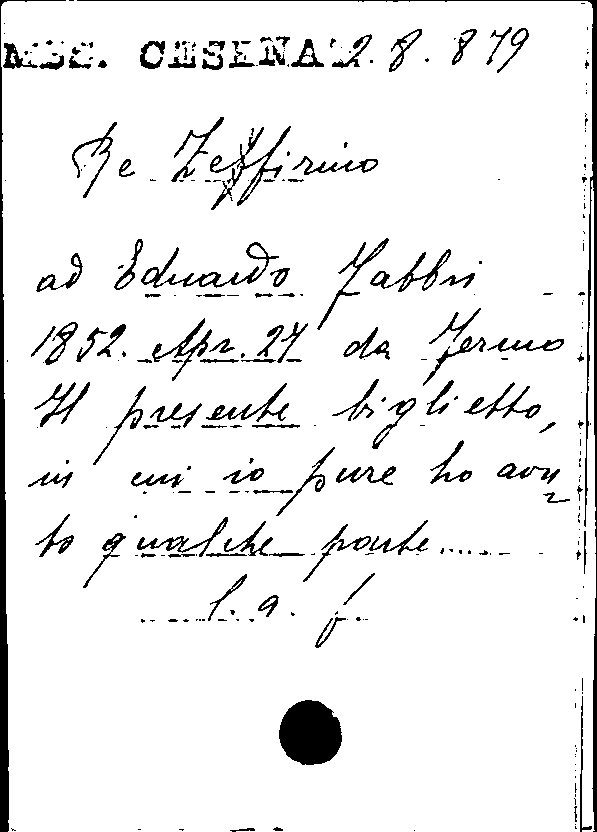 MSS. CESENA 2.8.879
Re Zeffirino
ad Eduardo Fabbri
1852. Apr. 27 da Fermo
Il presente biglietto,
in cui io pure ho avu
to qualche parte.....
l. a. f.